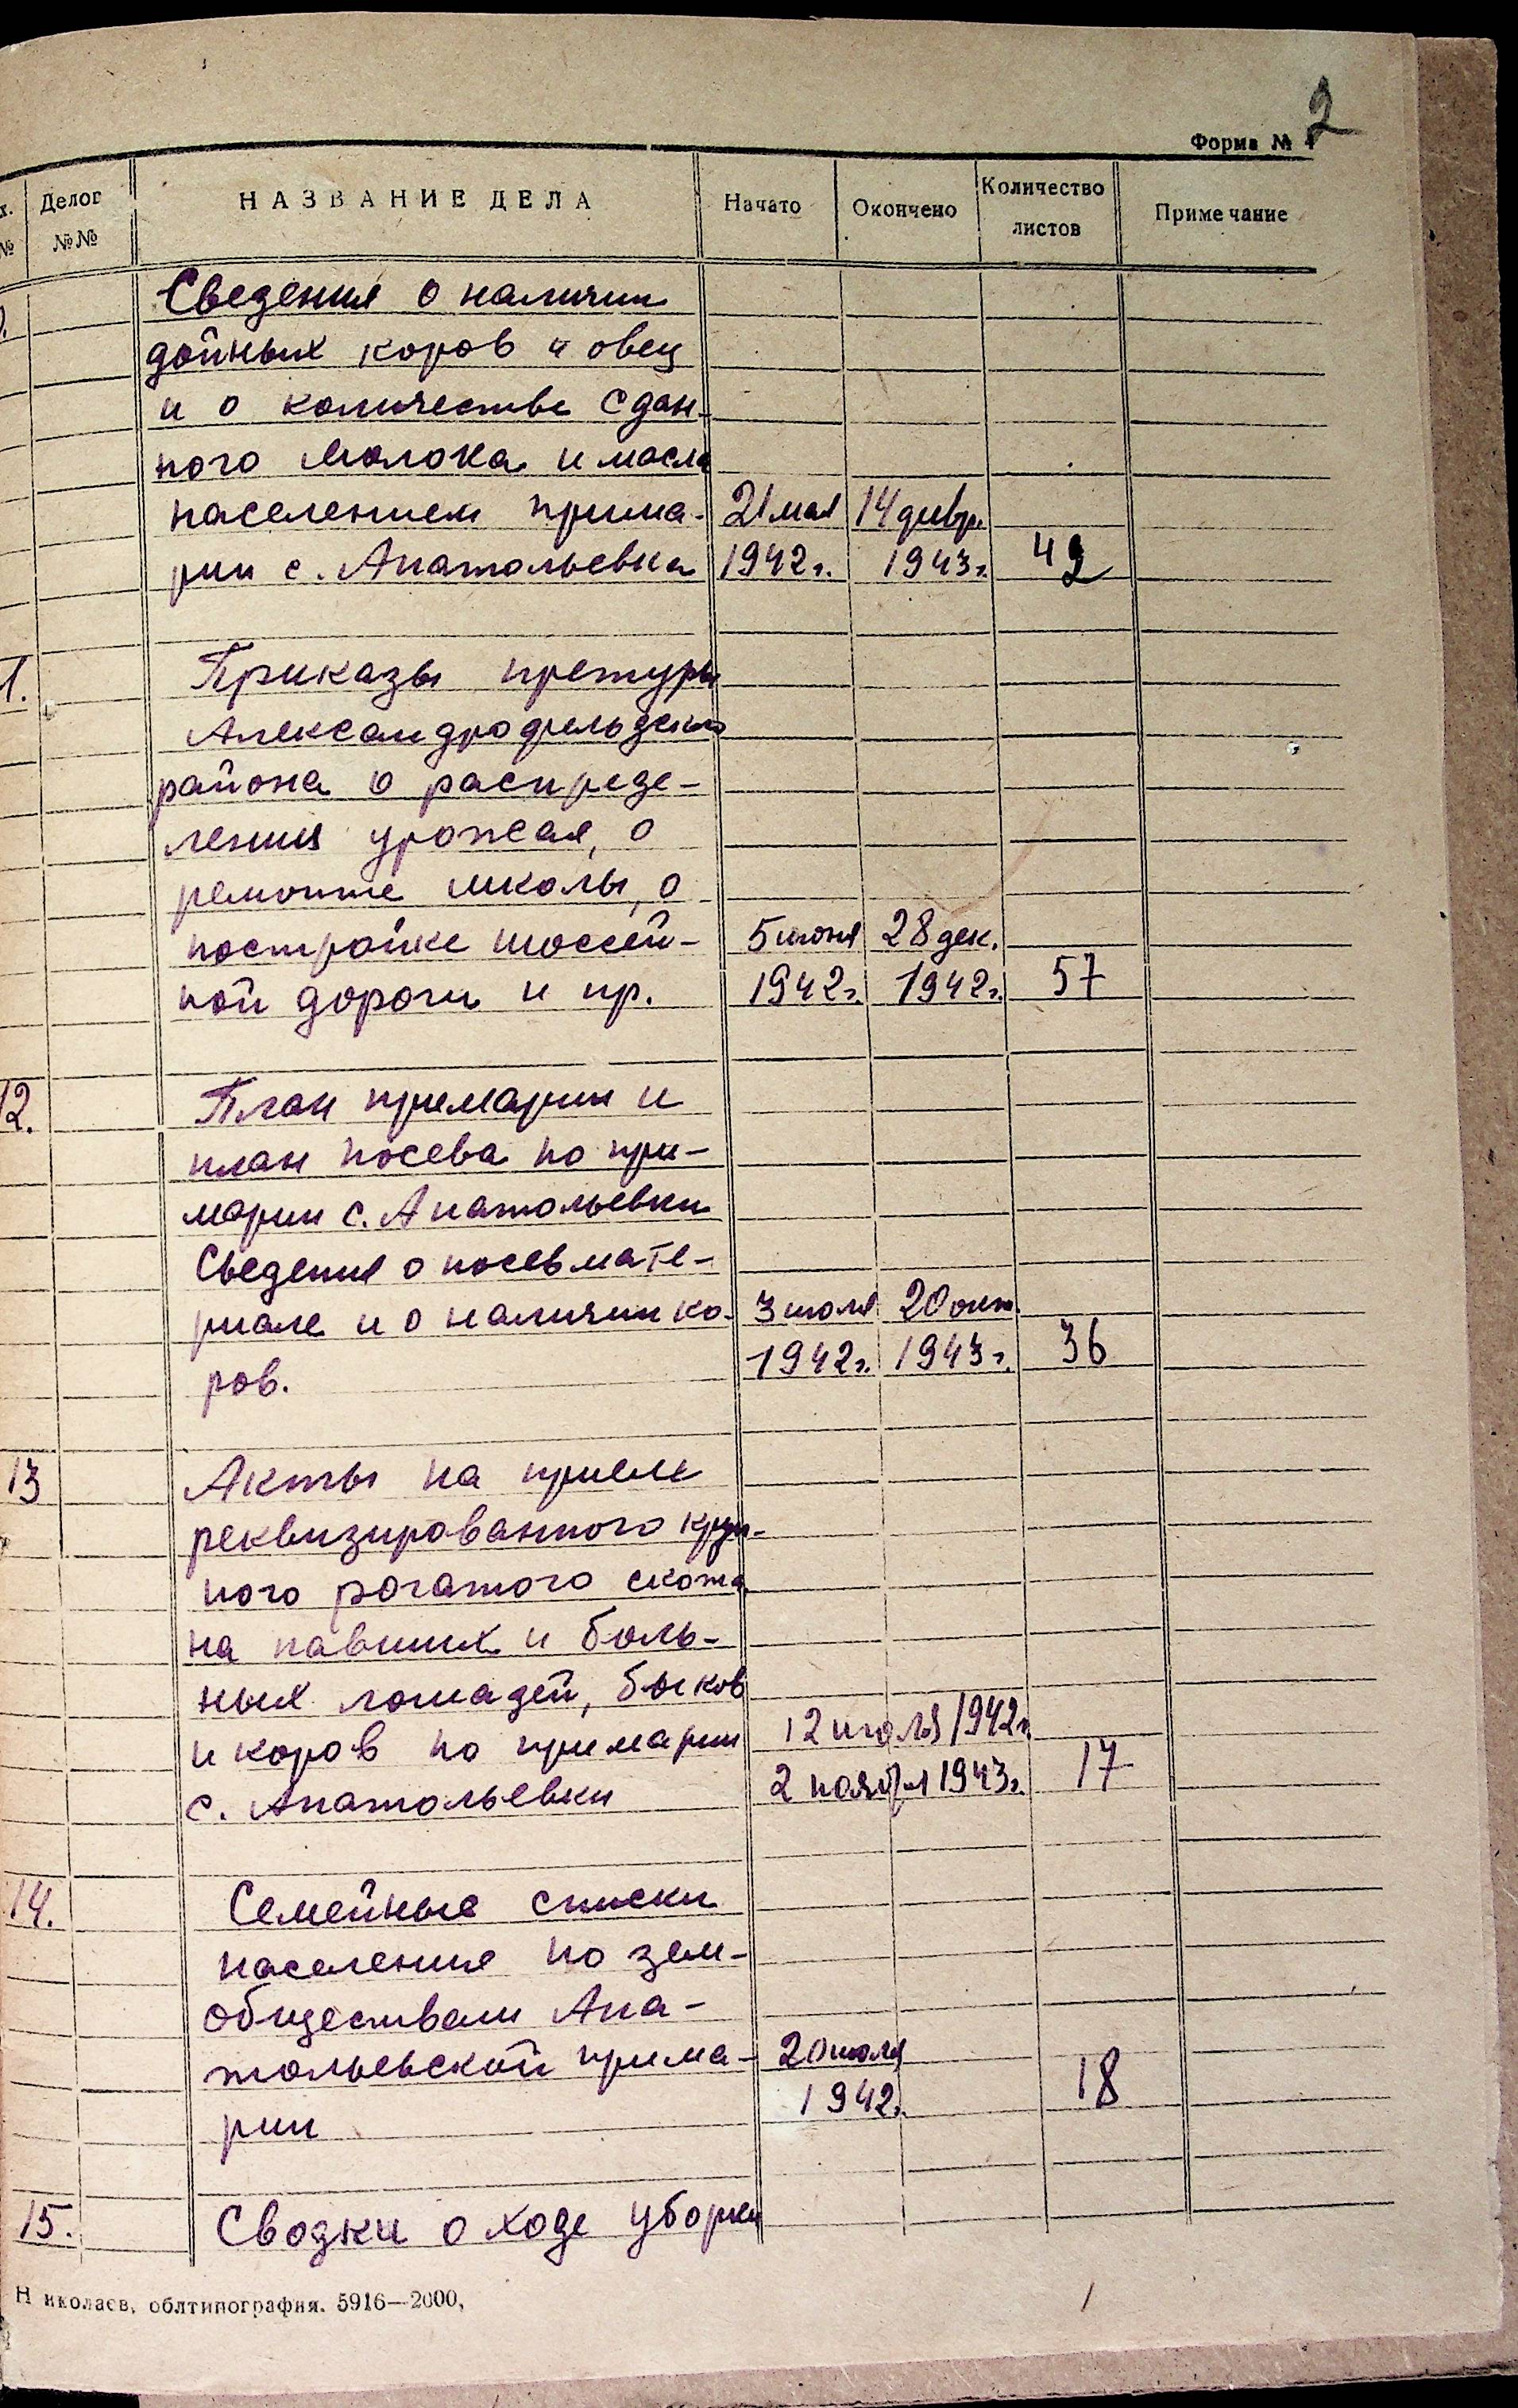 2
Форма № 1
№ Делог №№ НАЗВАНИЕ ДЕЛА Начато Окончено Количество листов Примечание
Сведения о наличии
дойных коров и овец
и о количестве сдан-
ного молока и масла
населением прима- 21 мая 14 февр.
рии с. Анатольевка 1942 г. 1943 г. 42
1. Приказы претуры
Александрофельдского
района о распреде-
ления урожая, о
ремонте школы, о
постройке шоссей- 5 июня 28 дек.
ной дороги и пр. 1942 г. 1942 г. 57
12. План примарии и
план посева по при-
марии с. Анатольевки
Сведения о посевмате-
риале и о наличии ко- 3 июля 20 окт.
ров. 1942 г. 1943 г. 36
13 Акты на прием
реквизированного круп-
ного рогатого скота
на павших и боль-
ных лошадей, быков
и коров по примарии 12 июля 1942 г.
с. Анатольевки 2 ноября 1943 г. 17
14. Семейные списки
населения по зем-
обществам Ана-
тольевской прима- 20 июля
рии 1942 г. 18
15. Сводки о ходе уборки
Николаев, облтипография. 5916—2000,